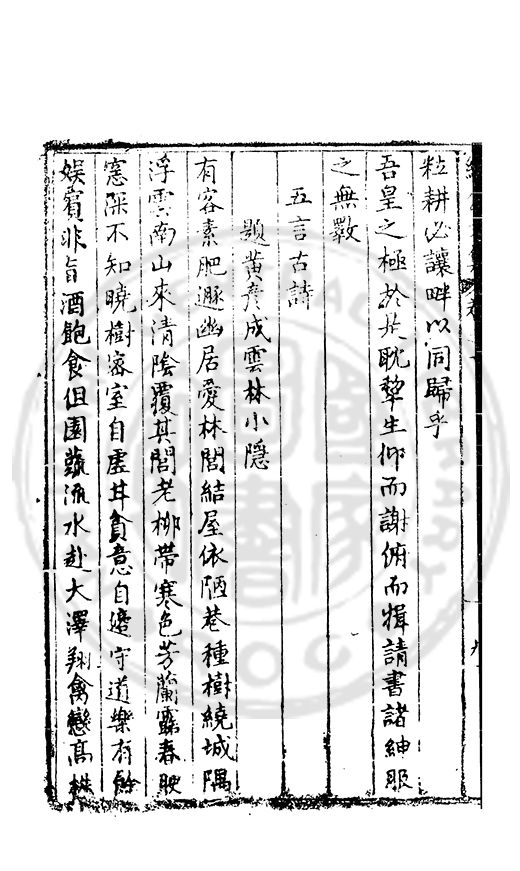 粒耕必讓畔以同歸乎
吾皇之極於是耽犂生仰而謝俯而揖請書諸紳服
之無斁
五言古詩
題黄彦成雲林小隱
有客素肥遯幽居愛林閭結屋依陋巷種樹繞城隅
浮雲南山來清陰覆其閭老柳帶寒色芳蘭露春腴
窓深不知曉樹密室自虛井貧意自邁守道樂有餘
娱賓非旨酒飽食但園蔬流水赴大澤翔禽戀髙株